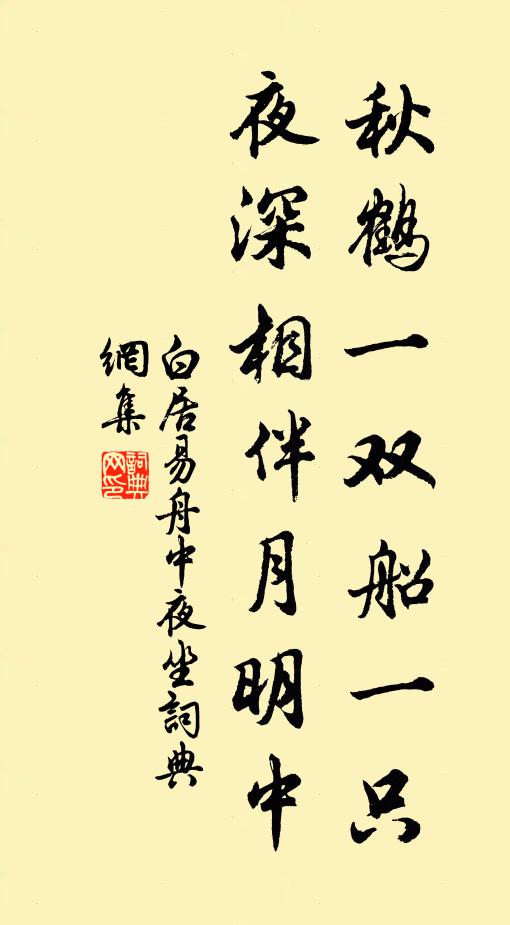 秋鹤一双船一只
夜深相伴月明中
白居易舟中夜坐詞典
網集
詞典
网印